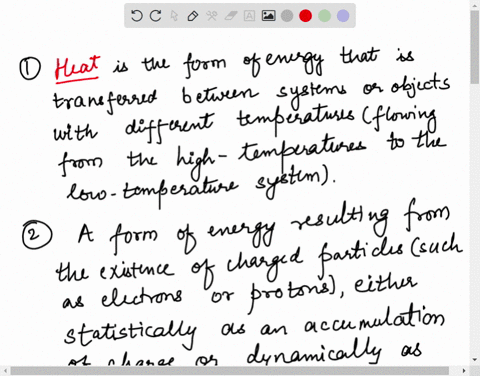 ① Heat is the form of energy that is
transferred between systems or objects
with different temperatures (flowing
from the high-temperatures to the
low-temperature system).
② A form of energy resulting from
the existence of charged particles (such
as electrons or protons), either
statistically as an accumulation
of charge or dynamically as